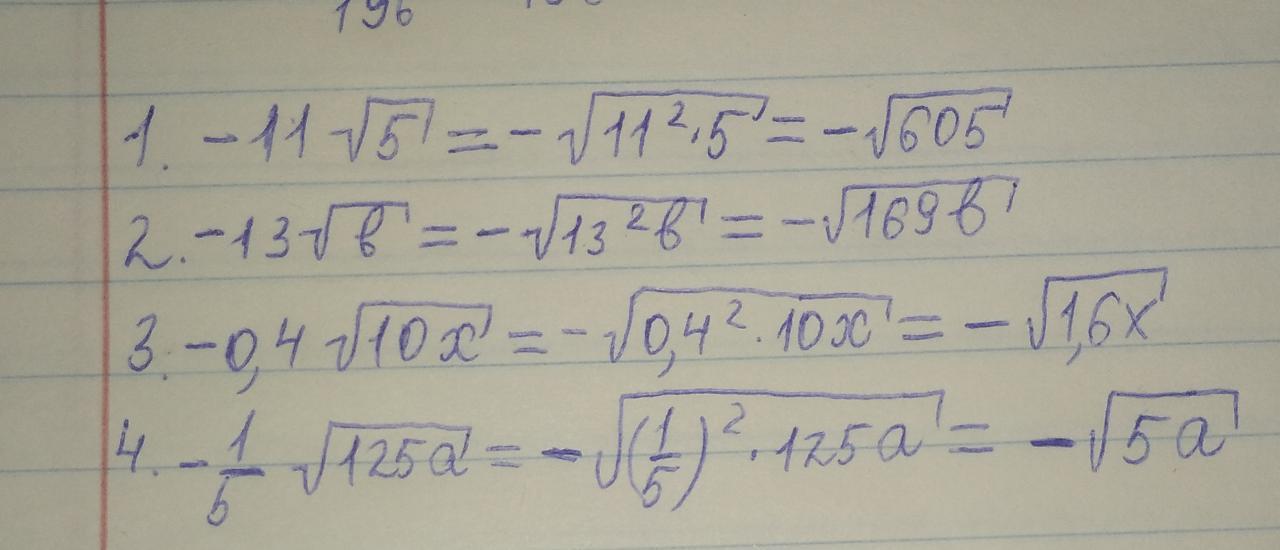 196
1. -11√5 = -√11²·5 = -√605
2. -13√b = -√13²b = -√169b
3. -0,4√10x = -√0,4²·10x = -√1,6x
4. -1/5 √125a = -√(1/5)²·125a = -√5a